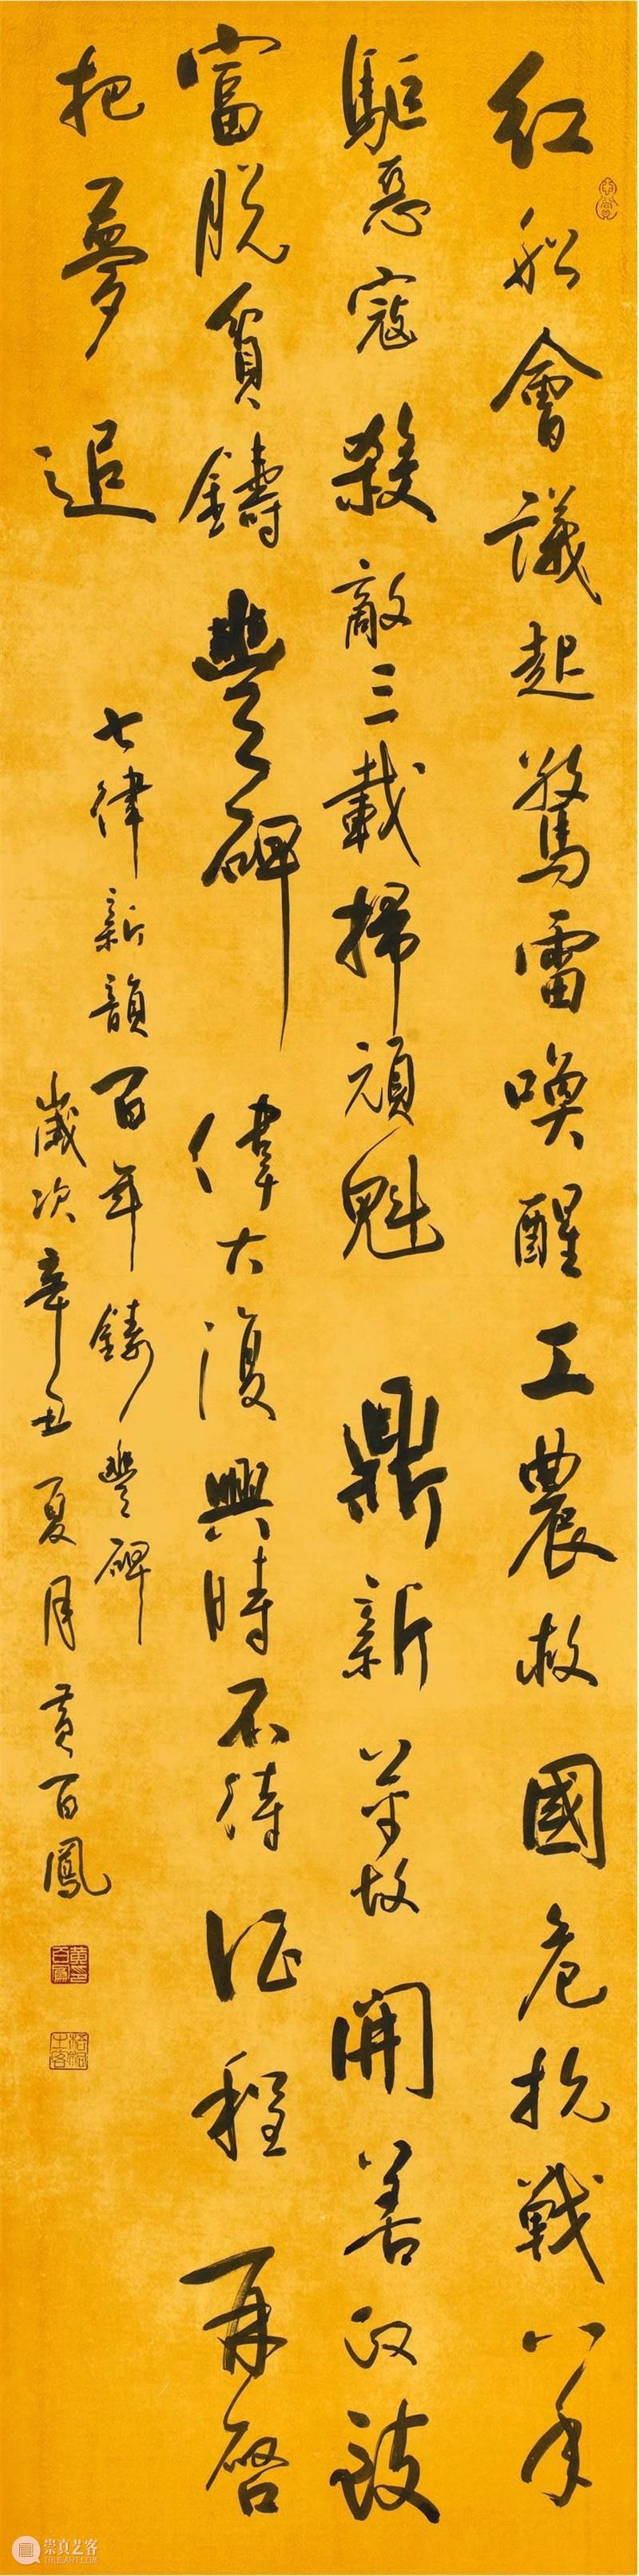 紅船會議起驚雷喚醒工農救國危抗戰八年
驅惡寇殺敵三載掃頑魁鼎新革故開善政致
富脫貧鑄豐碑偉大復興時不待征程再啓
把夢追
七律新韻百年鑄豐碑
歲次辛丑夏月黃百鳳
崇真艺客
TRUEART.COM